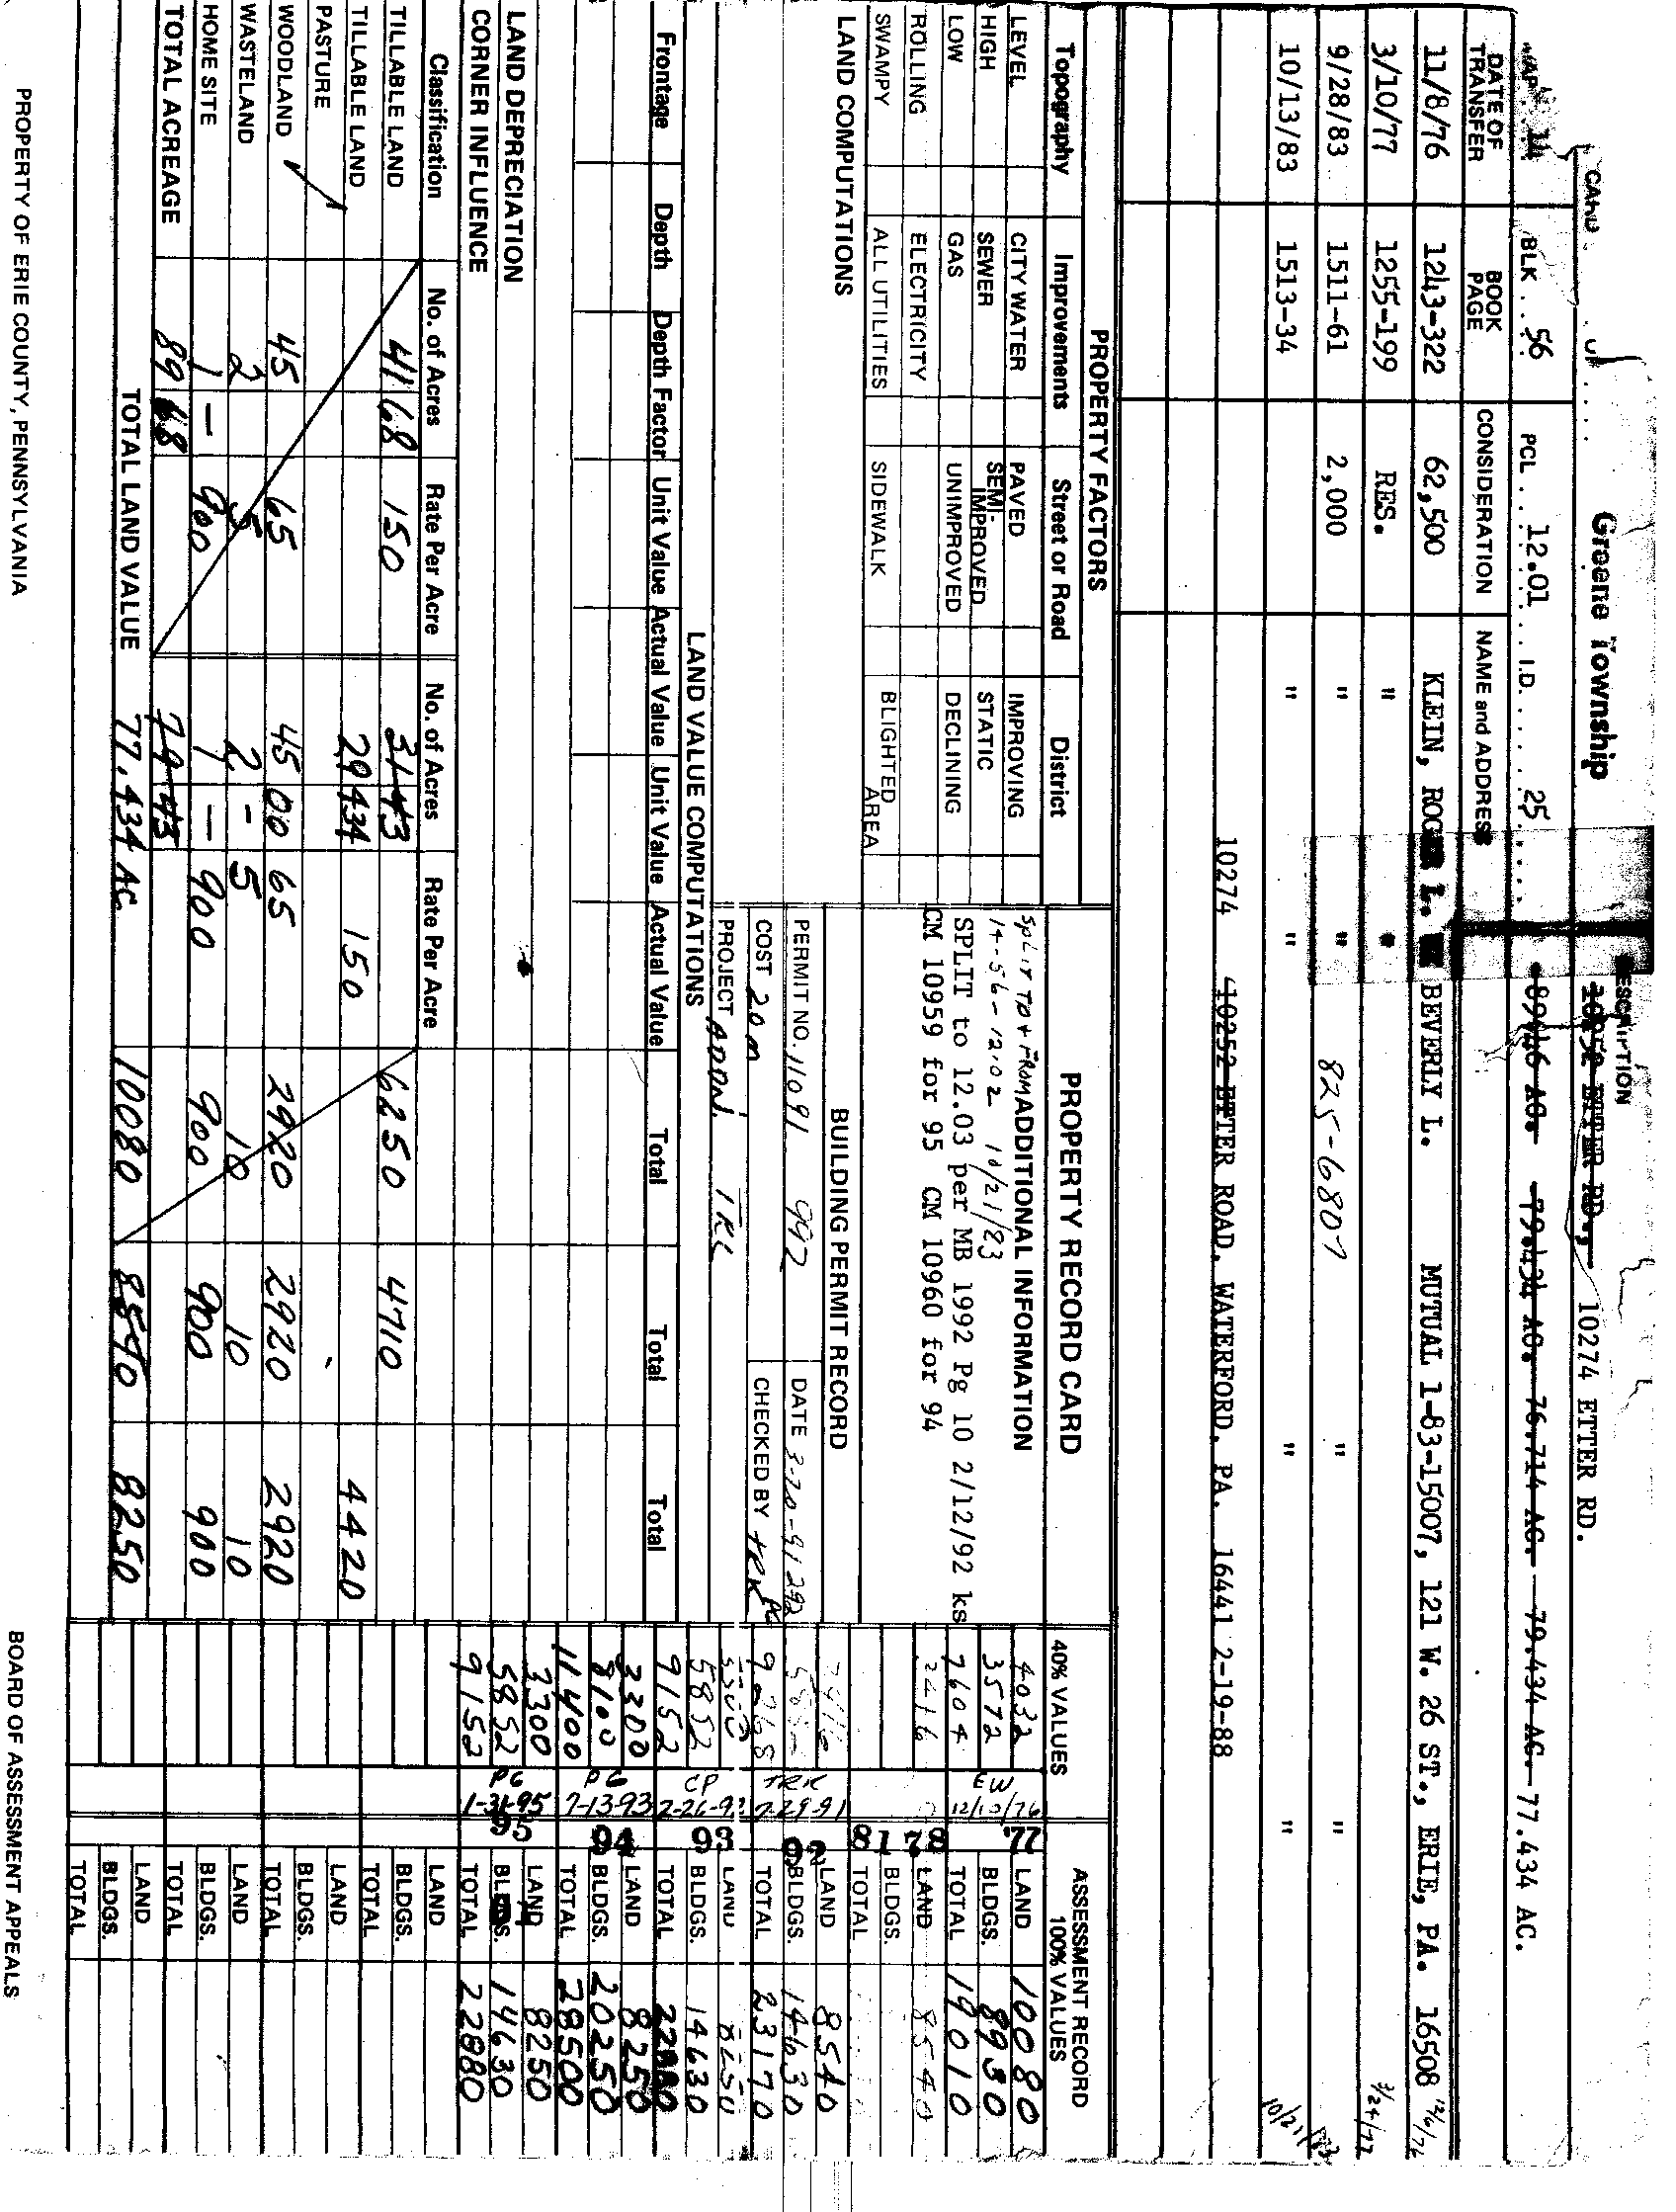 CARD
Greene Township
DESCRIPTION
10252 ETTER RD., 10274 ETTER RD.
MAP 14 BLK 56 PCL 12.01 I.D. 25
79.434 AC. 76.714 AC. 79.434 AC. 77.434 AC.
DATE OF TRANSFER BOOK PAGE CONSIDERATION NAME and ADDRESS
11/8/76 1243-322 62,500 KLEIN, ROGER L. BEVERLY L. MUTUAL 1-83-15007, 121 W. 26 ST., ERIE, PA. 16508 12/6/76
3/10/77 1255-199 RES. " 3/24/77
9/28/83 1511-61 2,000 " " 825-6807 " "
10/13/83 1513-34 " " " "
10274 10252 ETTER ROAD, WATERFORD, PA. 16441 2-19-88
PROPERTY FACTORS
Topography Improvements Street or Road District
LEVEL CITY WATER PAVED IMPROVING
HIGH SEWER SEMI-IMPROVED STATIC
LOW GAS UNIMPROVED DECLINING
ROLLING ELECTRICITY
SWAMPY ALL UTILITIES SIDEWALK BLIGHTED AREA
LAND COMPUTATIONS
PROPERTY RECORD CARD
ADDITIONAL INFORMATION
SPLIT TO + FROM
14-56-12.02 10/21/83
SPLIT to 12.03 per MB 1992 Pg 10 2/12/92 ks
CM 10959 for 95 CM 10960 for 94
BUILDING PERMIT RECORD
PERMIT NO. 11091 992 DATE 3-20-91 292
COST 20m CHECKED BY TRK
PROJECT ADDN. TRK
LAND VALUE COMPUTATIONS
Frontage Depth Depth Factor Unit Value Actual Value Unit Value Actual Value Total Total Total
LAND DEPRECIATION
CORNER INFLUENCE
Classification No. of Acres Rate Per Acre No. of Acres Rate Per Acre
TILLABLE LAND 41 68 150 31 43 6250 4710
TILLABLE LAND 29 434 150 4420
PASTURE
WOODLAND 45 65 45 00 65 2920 2920 2920
WASTELAND 2 5 2 - 5 10 10 10
HOME SITE 1 - 900 1 - 900 900 900 900
TOTAL ACREAGE 89 68 79 43
TOTAL LAND VALUE 77.434 AC. 10080 8540 8250
40% VALUES ASSESSMENT RECORD 100% VALUES
4032 '77 LAND 10080
3572 EW BLDGS. 8930
7604 12/10/76 TOTAL 19010
3416 78 LAND 8540
81 BLDGS.
TOTAL
3416 92 LAND 8540
5852 TRK BLDGS. 14630
9268 7-29-91 TOTAL 23170
93 LAND 8250
5852 CP BLDGS. 14630
9152 TOTAL 22880
3300 94 LAND 8250
8100 PG BLDGS. 20250
11400 7-13-93 TOTAL 28500
3300 95 LAND 8250
5852 PG BLDGS. 14630
9152 1-31-95 TOTAL 22880
LAND
BLDGS.
TOTAL
LAND
BLDGS.
TOTAL
LAND
BLDGS.
TOTAL
LAND
BLDGS.
TOTAL
PROPERTY OF ERIE COUNTY, PENNSYLVANIA
BOARD OF ASSESSMENT APPEALS